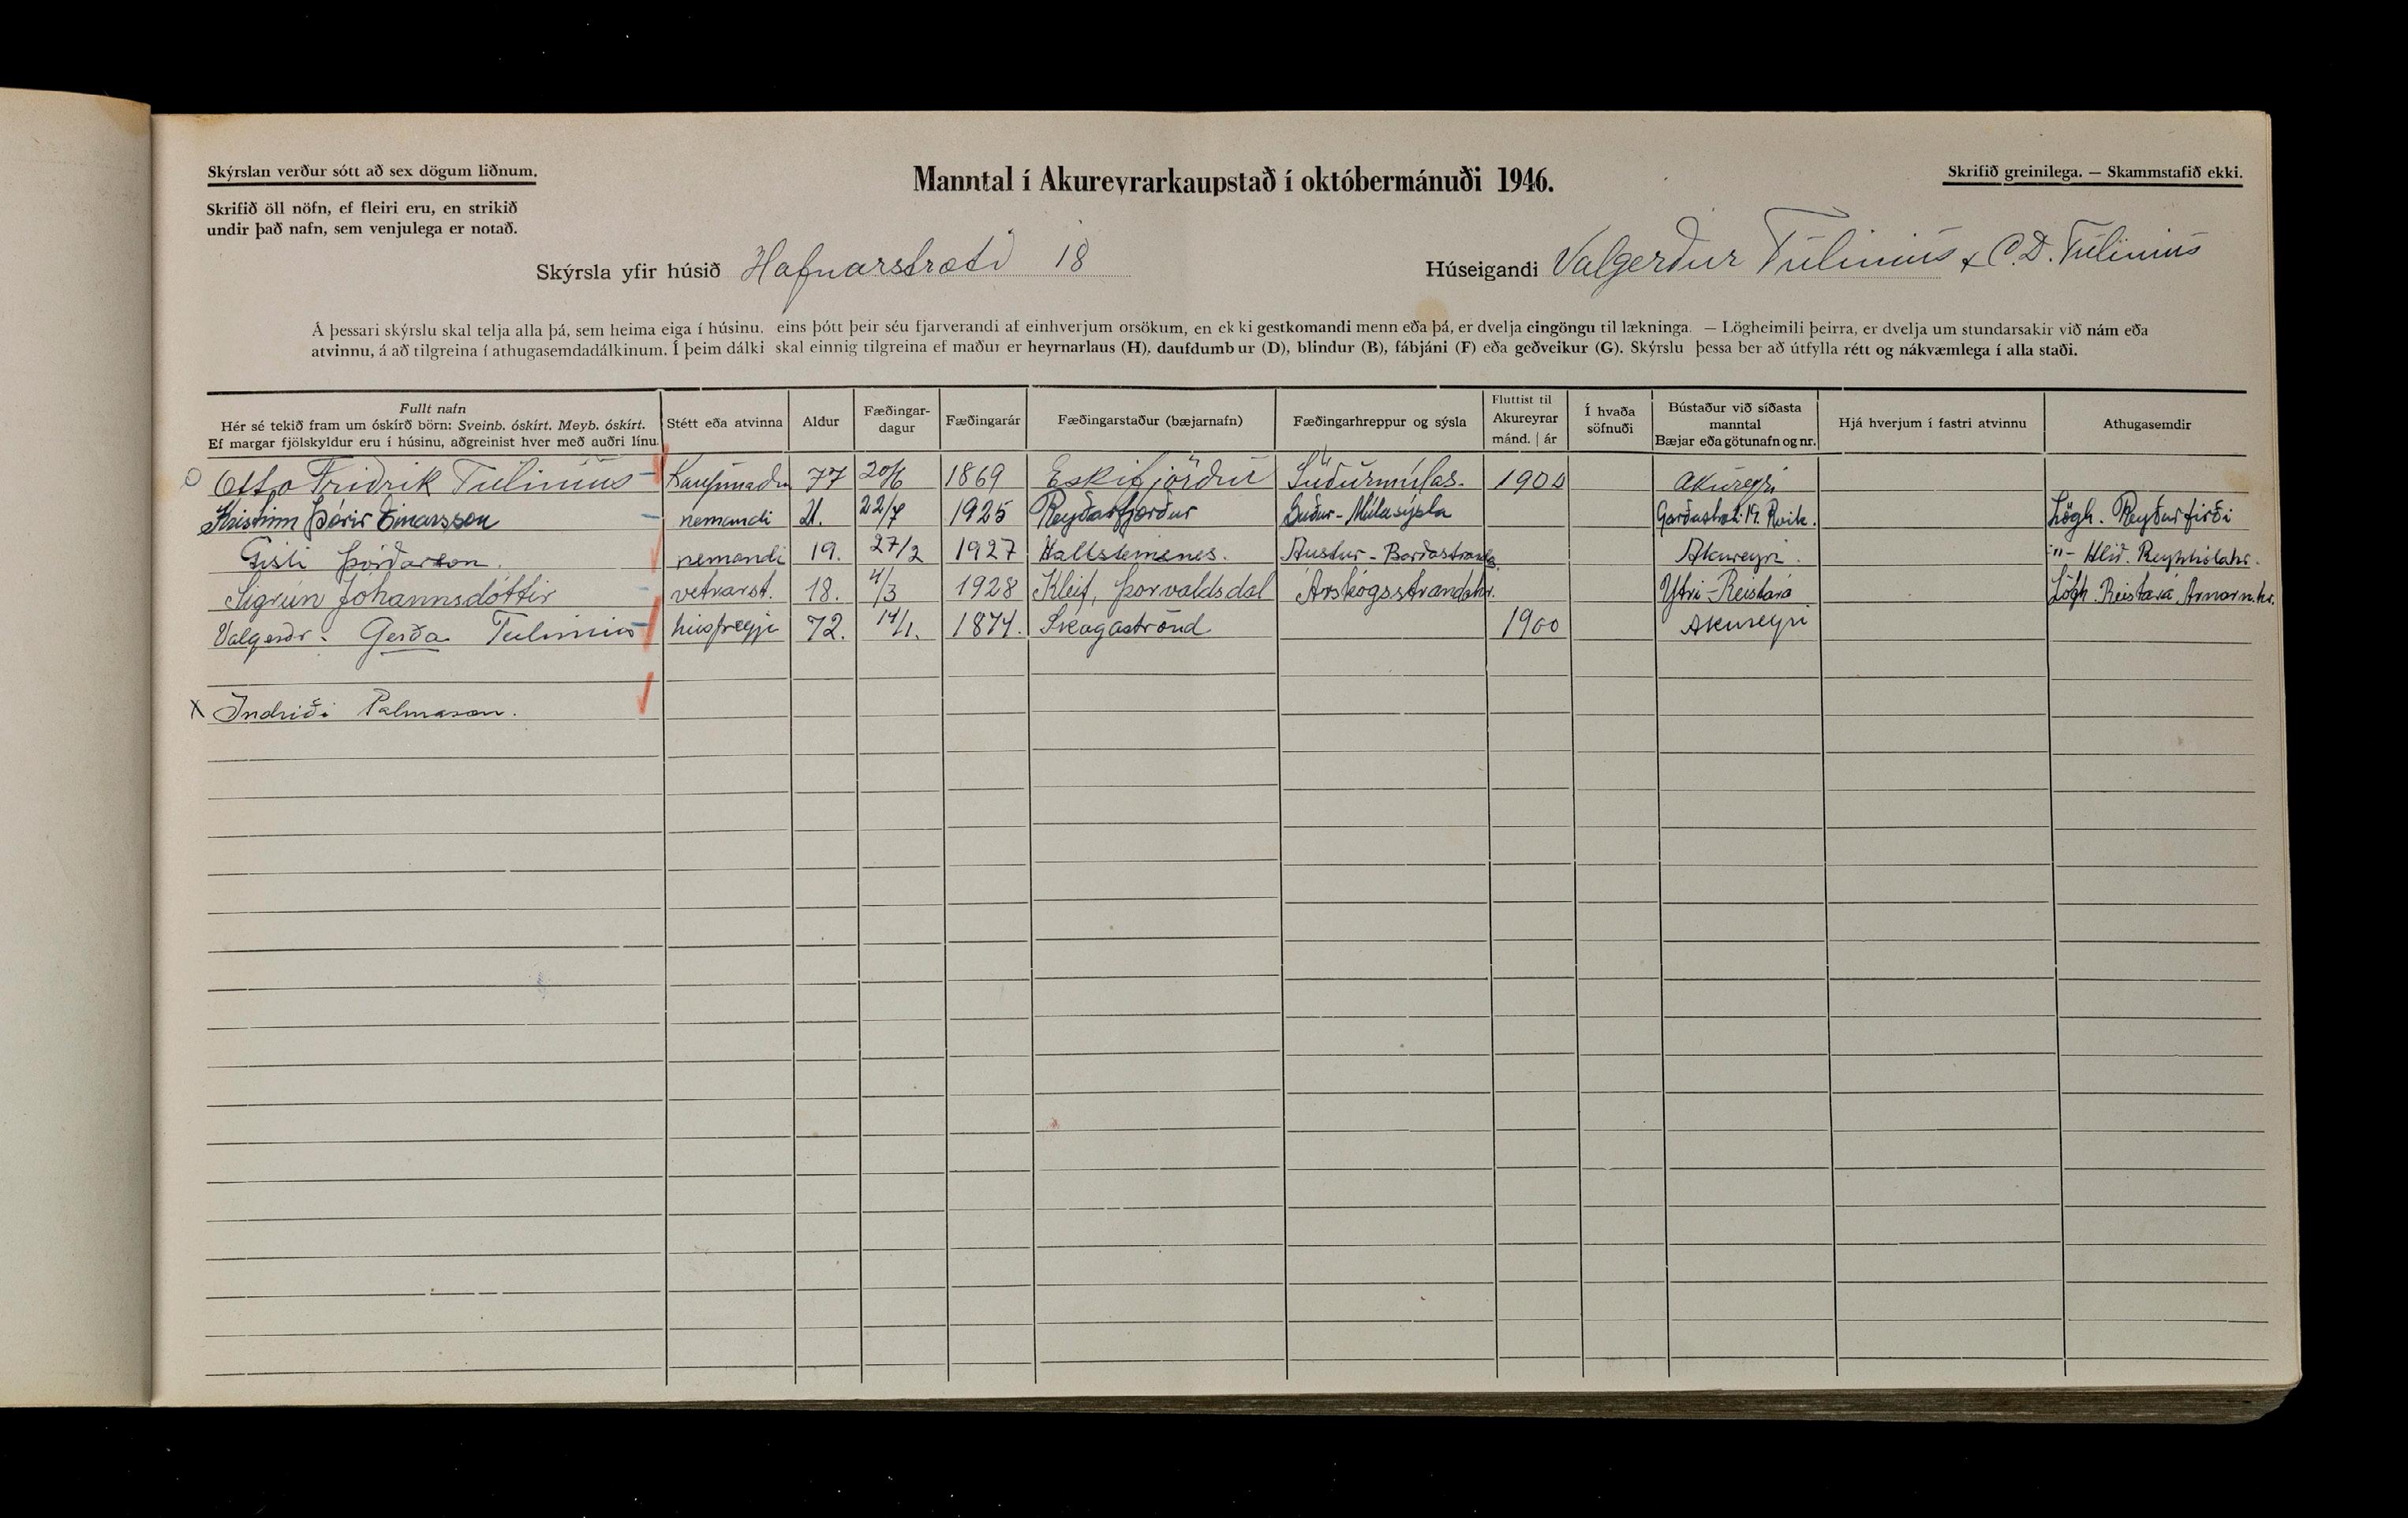 Skýrslan verður sótt að sex dögum liðnum.
Manntal í Akureyrarkaupstað í októbermánuði 1946.
Skrifið greinilega. — Skammstafið ekki.
Skrifið öll nöfn, ef fleiri eru, en strikið
undir það nafn, sem venjulega er notað.
Skýrsla yfir húsið Hafnarstræti 18 Húseigandi Valgerður Túlinius & C.D. Túlinius
Á þessari skýrslu skal telja alla þá, sem heima eiga í húsinu, eins þótt þeir séu fjarverandi af einhverjum orsökum, en ekki gestkomandi menn eða þá, er dvelja eingöngu til lækninga. — Lögheimili þeirra, er dvelja um stundarsakir við nám eða
atvinnu, á að tilgreina í athugasemdadálkinum. Í þeim dálki skal einnig tilgreina ef maður er heyrnarlaus (H), daufdumbur (D), blindur (B), fábjáni (F) eða geðveikur (G). Skýrslu þessa ber að útfylla rétt og nákvæmlega í alla staði.
Fullt nafn
Hér sé tekið fram um óskírð börn: Sveinb. óskírt. Meyb. óskírt.
Ef margar fjölskyldur eru í húsinu, aðgreinist hver með auðri línu.
Stétt eða atvinna
Aldur
Fæðingar-
dagur
Fæðingarár
Fæðingarstaður (bæjarnafn)
Fæðingarhreppur og sýsla
Fluttist til
Akureyrar
mánd. | ár
Í hvaða
söfnuði
Bústaður við síðasta
manntal
Bæjar eða götunafn og nr.
Hjá hverjum í fastri atvinnu
Athugasemdir
Otto Friðrik Túlinius Kaupmaður 77 20/6 1869 Eskifjörður Suðurmúlas. 1900 Akureyri
Kristinn Þórir Einarsson nemandi 21. 22/7 1925 Reyðarfjörður Suður-Múlasýsla Garðastræti 19. Rvík. Lögh. Reyðarfirði
Gísli Þórðarson. nemandi 19. 27/2 1927 Hallsteinsnes. Austur-Barðastrandas. Akureyri. -"- Hlíð. Reykhólahr.
Sigrún Jóhannsdóttir vetrarst. 18. 4/3 1928 Kleif, Þorvaldsdal Árskógsstrandahr. Ytri-Reistará Lögh. Reistará Arnarn.hr.
Valgerðr. Gerða Tulinius húsfreyja 72. 14/1. 1874. Skagaströnd 1900 Akureyri
X Indriði Pálmason.